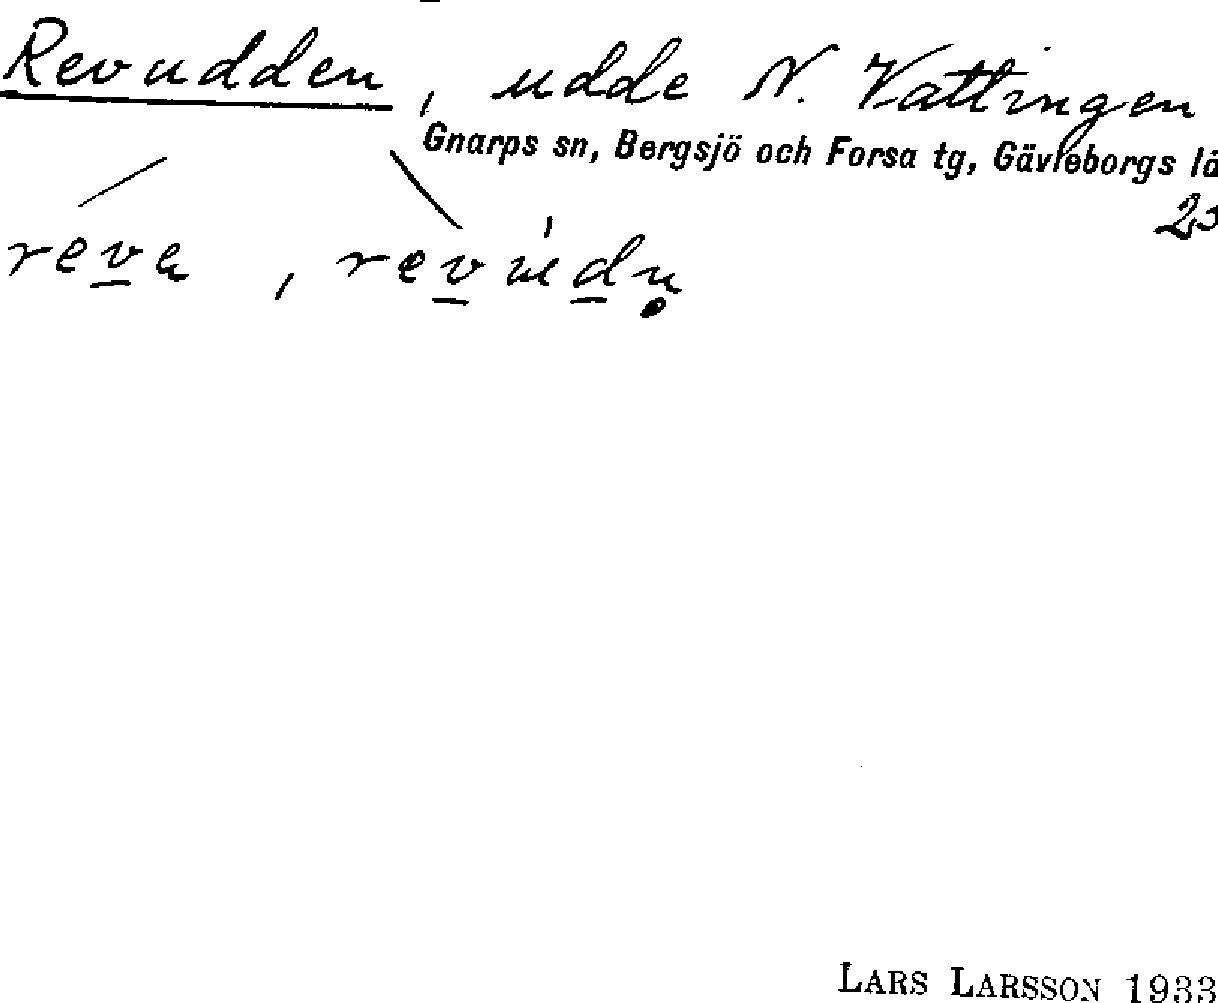 Revudden, udde N. Vattingen
Gnarps sn, Bergsjö och Forsa tg, Gävleborgs lä
23
reva, revudn
LARS LARSSON 1933